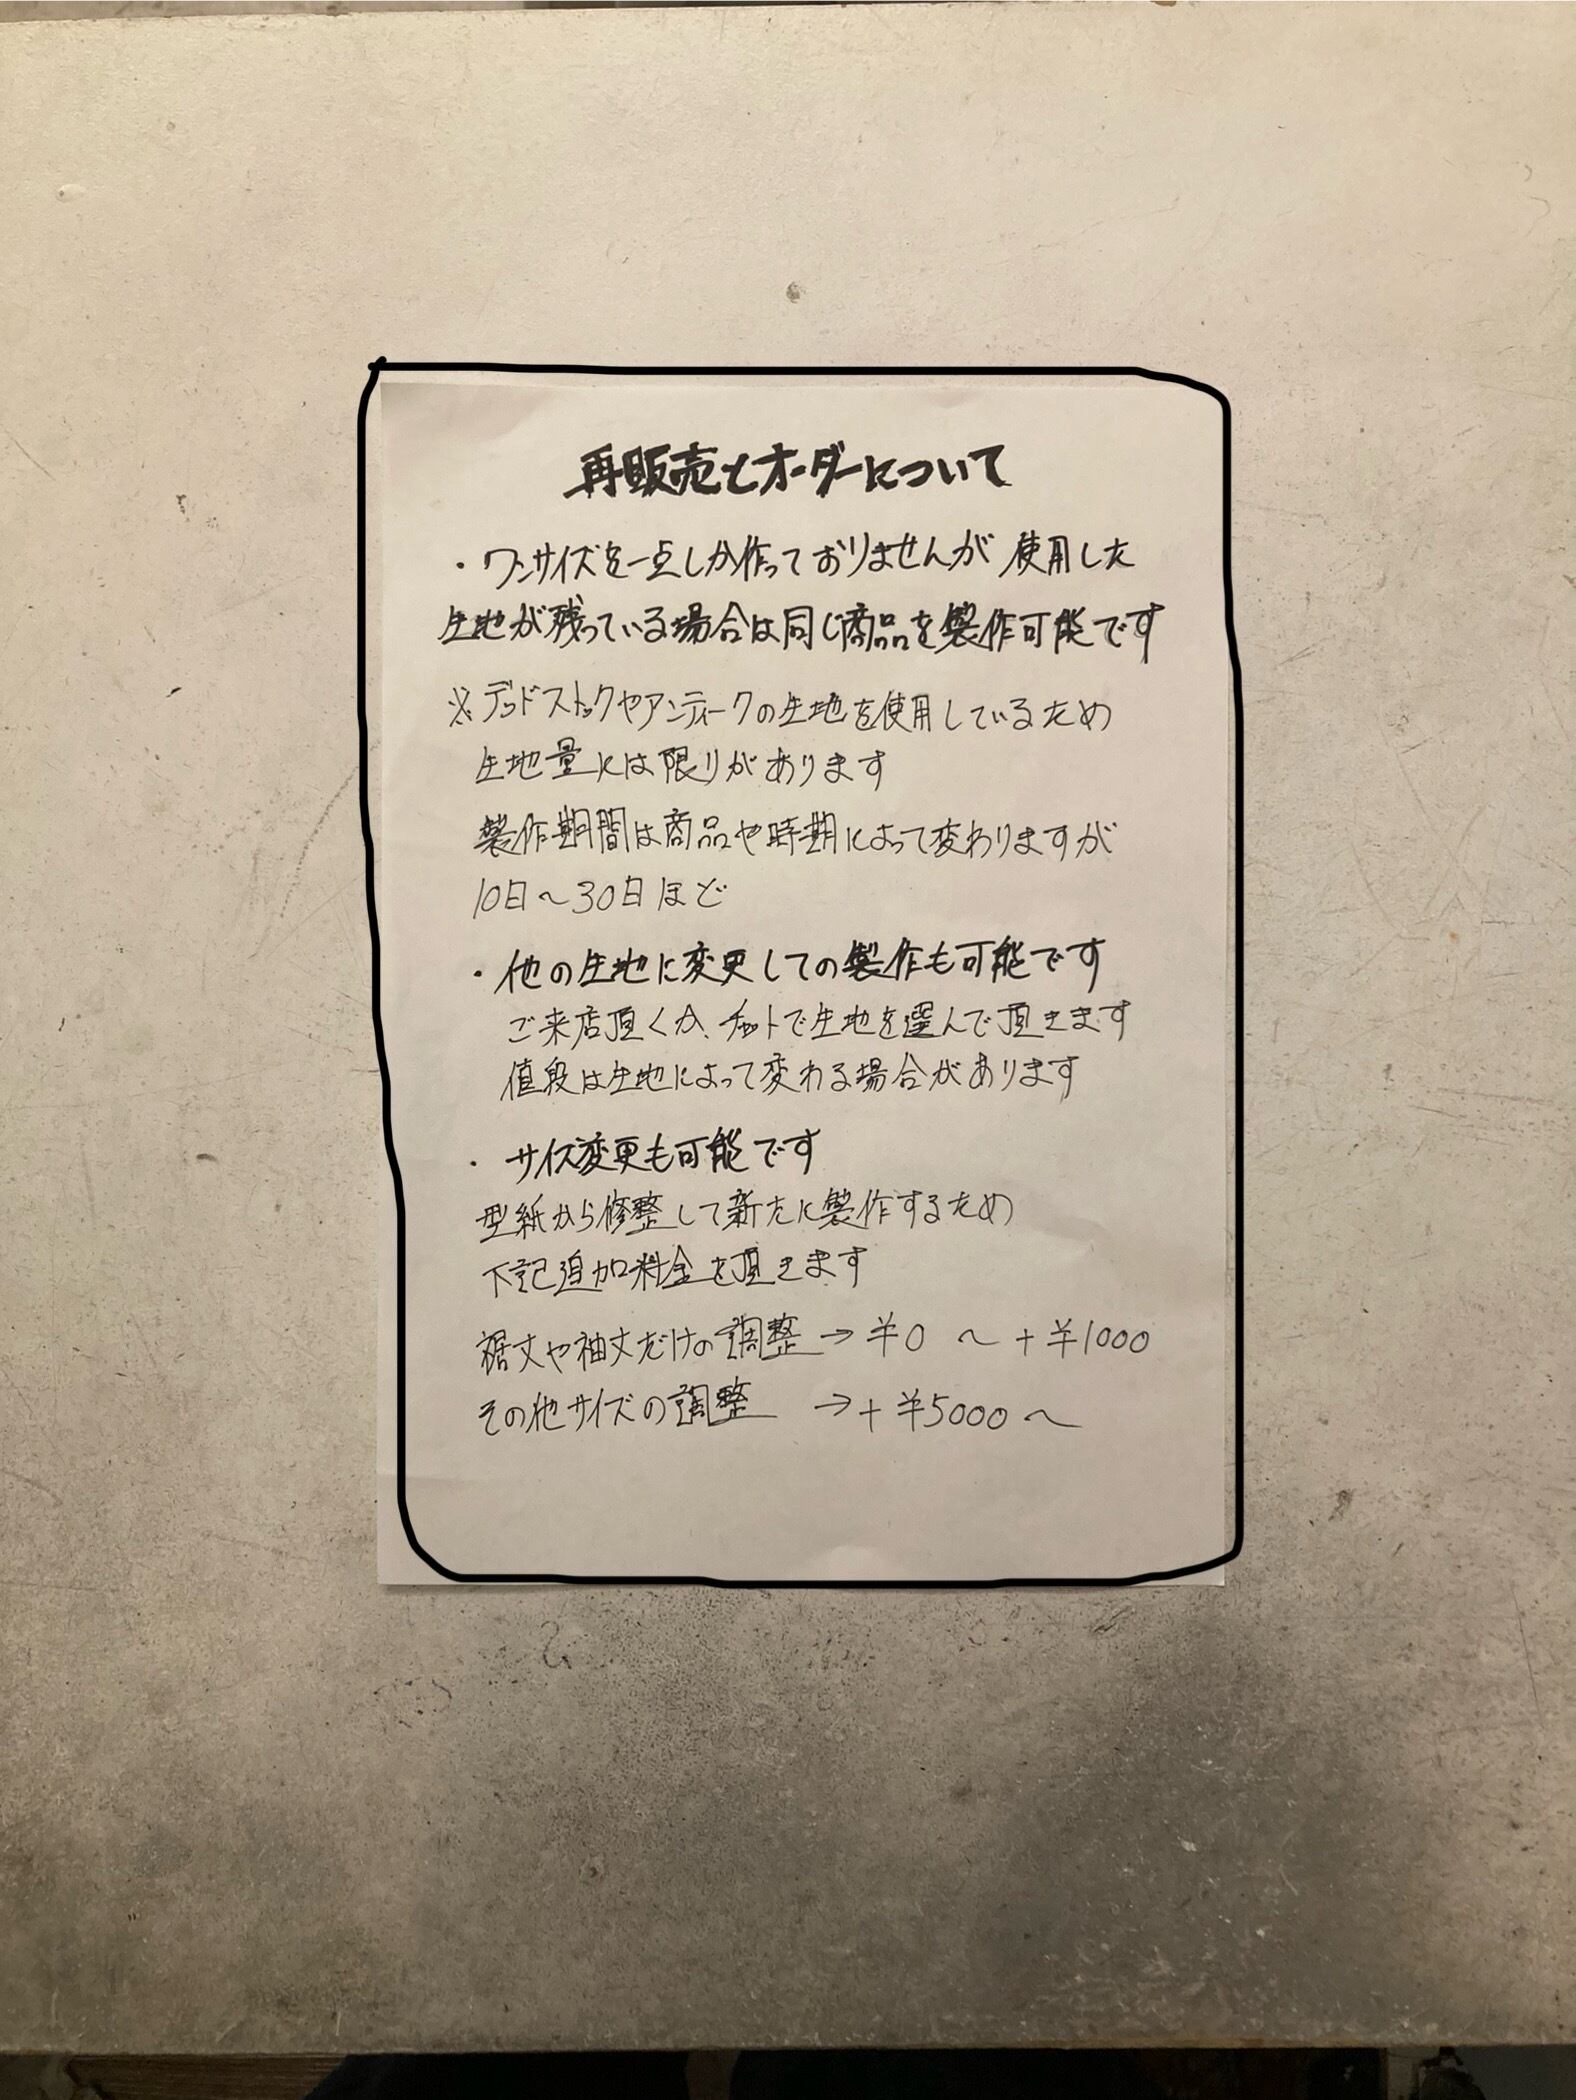 再販売とオーダーについて
・ワンサイズを一点しか作っておりませんが 使用した
生地が残っている場合は同じ商品を製作可能です
※デッドストックやアンティークの生地を使用しているため
生地量には限りがあります
製作期間は商品や時期によって変わりますが
10日〜30日ほど
・他の生地に変更しての製作も可能です
ご来店頂くか、チャットで生地を選んで頂きます
値段は生地によって変わる場合があります
・サイズ変更も可能です
型紙から修整して新たに製作するため
下記追加料金を頂きます
裾丈や袖丈だけの調整→¥0 〜+¥1000
その他サイズの調整 →+¥5000〜